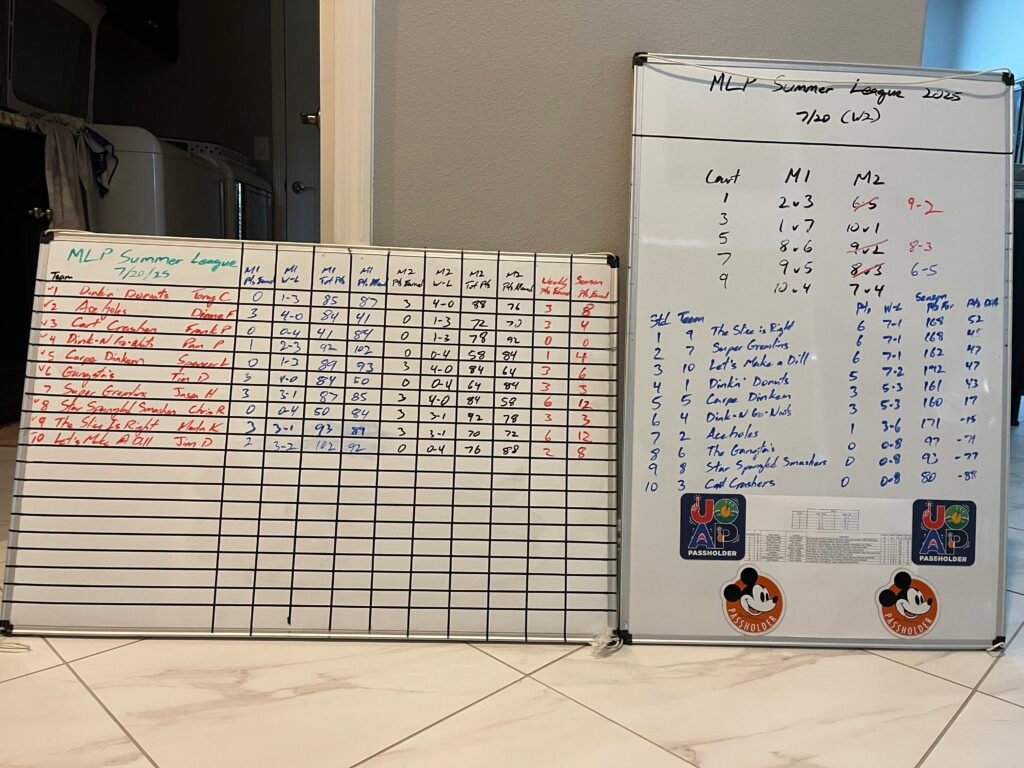 MLP Summer League
7/20/25
Team M1 Pts Earned M1 W-L M1 Tot Pts M1 Pts Allowed M2 Pts Earned M2 W-L M2 Tot Pts M2 Pts Allowed Weekly Pts Earned Season Pts Earned
1 Dinkin' Donuts Tony C 0 1-3 85 87 3 4-0 88 76 3 8
2 Aceholes Dianne F 3 4-0 84 41 0 1-3 72 3 4
3 Court Crashers Frank P 0 0-4 41 84 0 1-3 78 92 0 0
4 Dink-N Go-Nuts Pam P 1 2-3 92 102 0 0-4 58 84 1 4
5 Carpe Dinkem Spencer L 0 1-3 89 93 3 4-0 84 64 3 6
6 Gangsta's Tim D 3 4-0 84 50 0 0-4 64 84 3 3
7 Super Gremlins Jason H 3 3-1 87 85 3 4-0 84 58 6 12
8 Star Spangled Smashers Chris R 0 0-4 50 84 3 3-1 92 78 3 3
9 The Slice Is Right K 3 3-1 93 89 3 3-1 70 72 6 12
10 Let's Make A Dill Jim D 2 3-2 102 92 0 0-4 76 88 2 8
MLP Summer League 2025
7/20 (W2)
Court M1 M2
1 2 v 3 6 v 5 9-2
3 1 v 7 10 v 1
5 8 v 6 9 v 2 8-3
7 9 v 5 8 v 3 6-5
9 10 v 4 7 v 4
Std Team Pts W-L Season Pts For Pts Diff
1 9 The Slice is Right 6 7-1 168 52
2 7 Super Gremlins 6 7-1 168
3 10 Let's Make a Dill 6 7-1 162 47
4 1 Dinkin' Donuts 5 7-2 192 47
5 5 Carpe Dinkem 3 5-3 161 43
6 4 Dink-N Go-Nuts 3 5-3 160 17
7 2 Aceholes 1 3-6 171 -15
8 6 The Gangsta's 0 0-8 97 -71
9 8 Star Spangled Smashers 0 0-8 93 -77
10 3 Court Crashers 0 0-8 80 -88
UOAP
PASSHOLDER
UOAP
PASSHOLDER
PASSHOLDER
PASSHOLDER